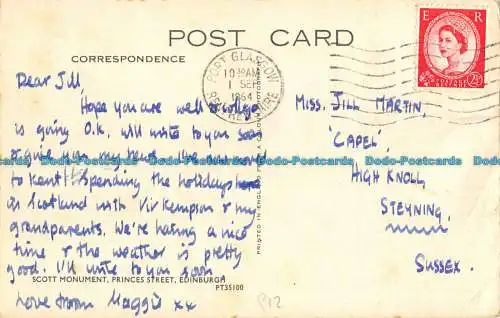 POST CARD
CORRESPONDENCE
Dear Jill
Hope you are well & college
is going O.K., will write to you soon
& give you my news. I've moved
to Kent! Spending the holidays here
in Scotland with Viv Kempson & my
grandparents. We're having a nice
time & the weather is pretty
good. I'll write to you soon
Love from Maggie xx
SCOTT MONUMENT, PRINCES STREET, EDINBURGH
PT35100
PORT GLASGOW
10 30 AM
1 SEP
1964
RENFREWSHIRE
E R
POSTAGE REVENUE
2½D
MISS. JILL MARTIN,
'CAPEL',
HIGH KNOLL,
STEYNING,
SUSSEX.
P12
Dodo-Postcards Dodo-Postcards Dodo-Postcards Dodo-Postcards Dodo-Postcards